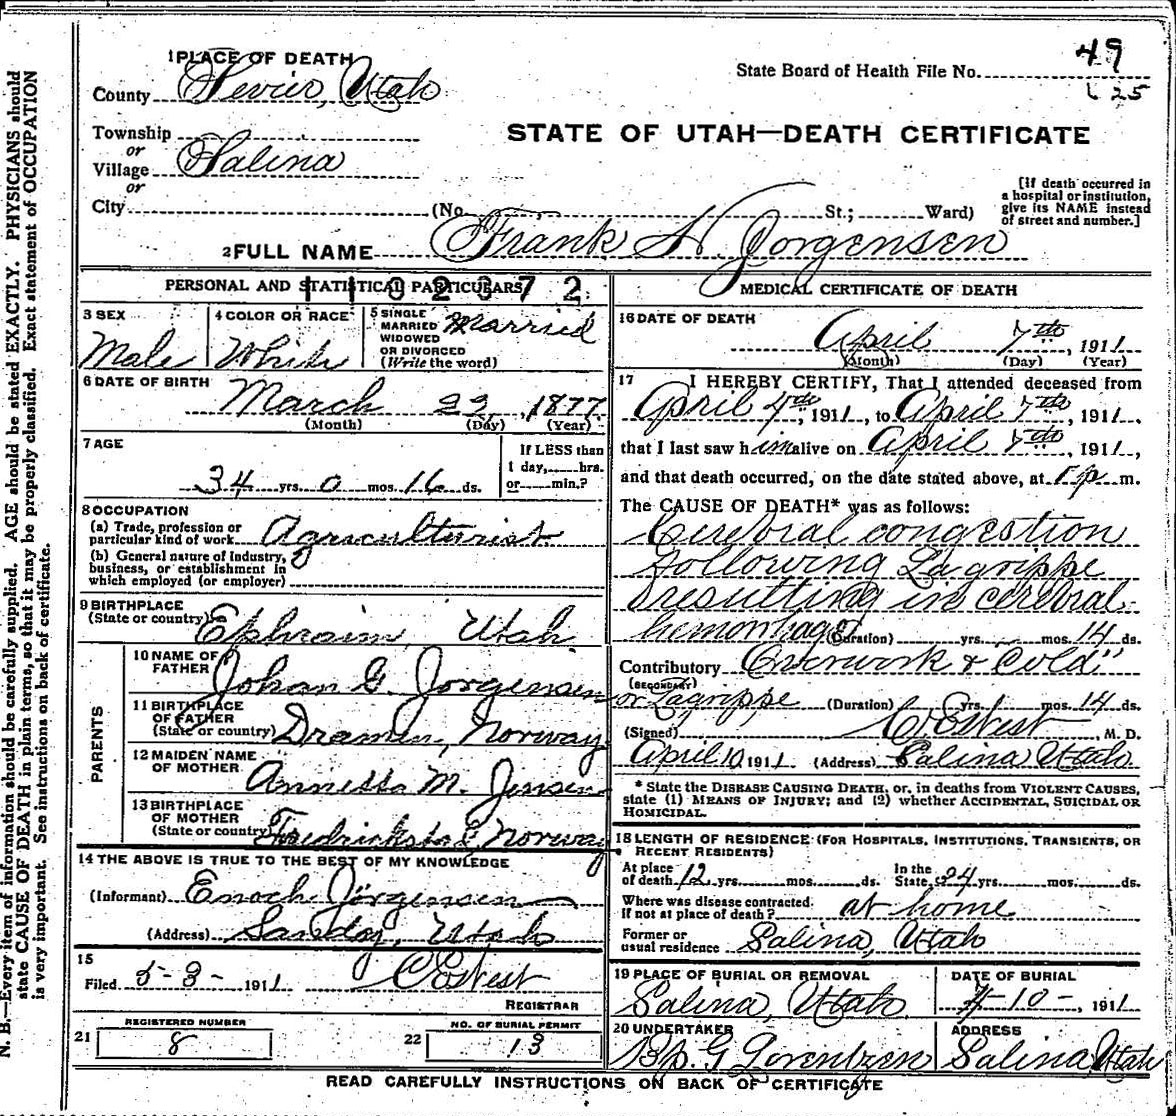 49
1 PLACE OF DEATH
State Board of Health File No.
25
County Sevier, Utah
STATE OF UTAH—DEATH CERTIFICATE
Township
or
Village Salina
or
City (No. St.; Ward)
[If death occurred in
a hospital or institution,
give its NAME instead
of street and number.]
2 FULL NAME Frank N Jorgensen
1102372
PERSONAL AND STATISTICAL PARTICULARS
3 SEX
Male
4 COLOR OR RACE
White
5 SINGLE
MARRIED
WIDOWED
OR DIVORCED
(Write the word)
Married
6 DATE OF BIRTH
March 22, 1877
(Month) (Day) (Year)
7 AGE
34 yrs. 0 mos. 16 ds.
If LESS than
1 day, hrs.
or min.?
8 OCCUPATION
(a) Trade, profession or
particular kind of work Agriculturist
(b) General nature of industry,
business, or establishment in
which employed (or employer)
9 BIRTHPLACE
(State or country) Ephraim, Utah
PARENTS
10 NAME OF
FATHER Johan G. Jorgensen
11 BIRTHPLACE
OF FATHER
(State or country) Dramen, Norway
12 MAIDEN NAME
OF MOTHER Annetta M. Jensen
13 BIRTHPLACE
OF MOTHER
(State or country) Norway
14 THE ABOVE IS TRUE TO THE BEST OF MY KNOWLEDGE
(Informant) Enoch Jörgensen
(Address) Sandy, Utah
15
Filed 5-3- 1911 C E West
REGISTRAR
REGISTERED NUMBER
21 8
NO. OF BURIAL PERMIT
22 13
MEDICAL CERTIFICATE OF DEATH
16 DATE OF DEATH
April 7th, 1911
(Month) (Day) (Year)
17 I HEREBY CERTIFY, That I attended deceased from
April 4th, 1911, to April 7th, 1911,
that I last saw him alive on April 7th, 1911,
and that death occurred, on the date stated above, at p m.
The CAUSE OF DEATH* was as follows:
Cerebral congestion
following La grippe
resulting in cerebral
hemorrhage (Duration) yrs. mos. 14 ds.
Contributory Overwork & "Cold"
(SECONDARY)
or Lagrippe (Duration) yrs. mos. 14 ds.
(Signed) C E West, M. D.
April 10 1911 (Address) Salina Utah
* State the DISEASE CAUSING DEATH, or, in deaths from VIOLENT CAUSES,
state (1) MEANS OF INJURY; and (2) whether ACCIDENTAL, SUICIDAL OR
HOMICIDAL.
18 LENGTH OF RESIDENCE (FOR HOSPITALS, INSTITUTIONS, TRANSIENTS, OR
RECENT RESIDENTS)
At place
of death 12 yrs. mos. ds.
In the
State 34 yrs. mos. ds.
Where was disease contracted,
if not at place of death? at home
Former or
usual residence Salina, Utah
19 PLACE OF BURIAL OR REMOVAL
Salina, Utah
DATE OF BURIAL
4-10-, 1911
20 UNDERTAKER
Bp. G Lorentzen
ADDRESS
Salina, Utah
READ CAREFULLY INSTRUCTIONS ON BACK OF CERTIFICATE
N. B.—Every item of information should be carefully supplied. AGE should be stated EXACTLY. PHYSICIANS should
state CAUSE OF DEATH in plain terms, so that it may be properly classified. Exact statement of OCCUPATION
is very important. See instructions on back of certificate.